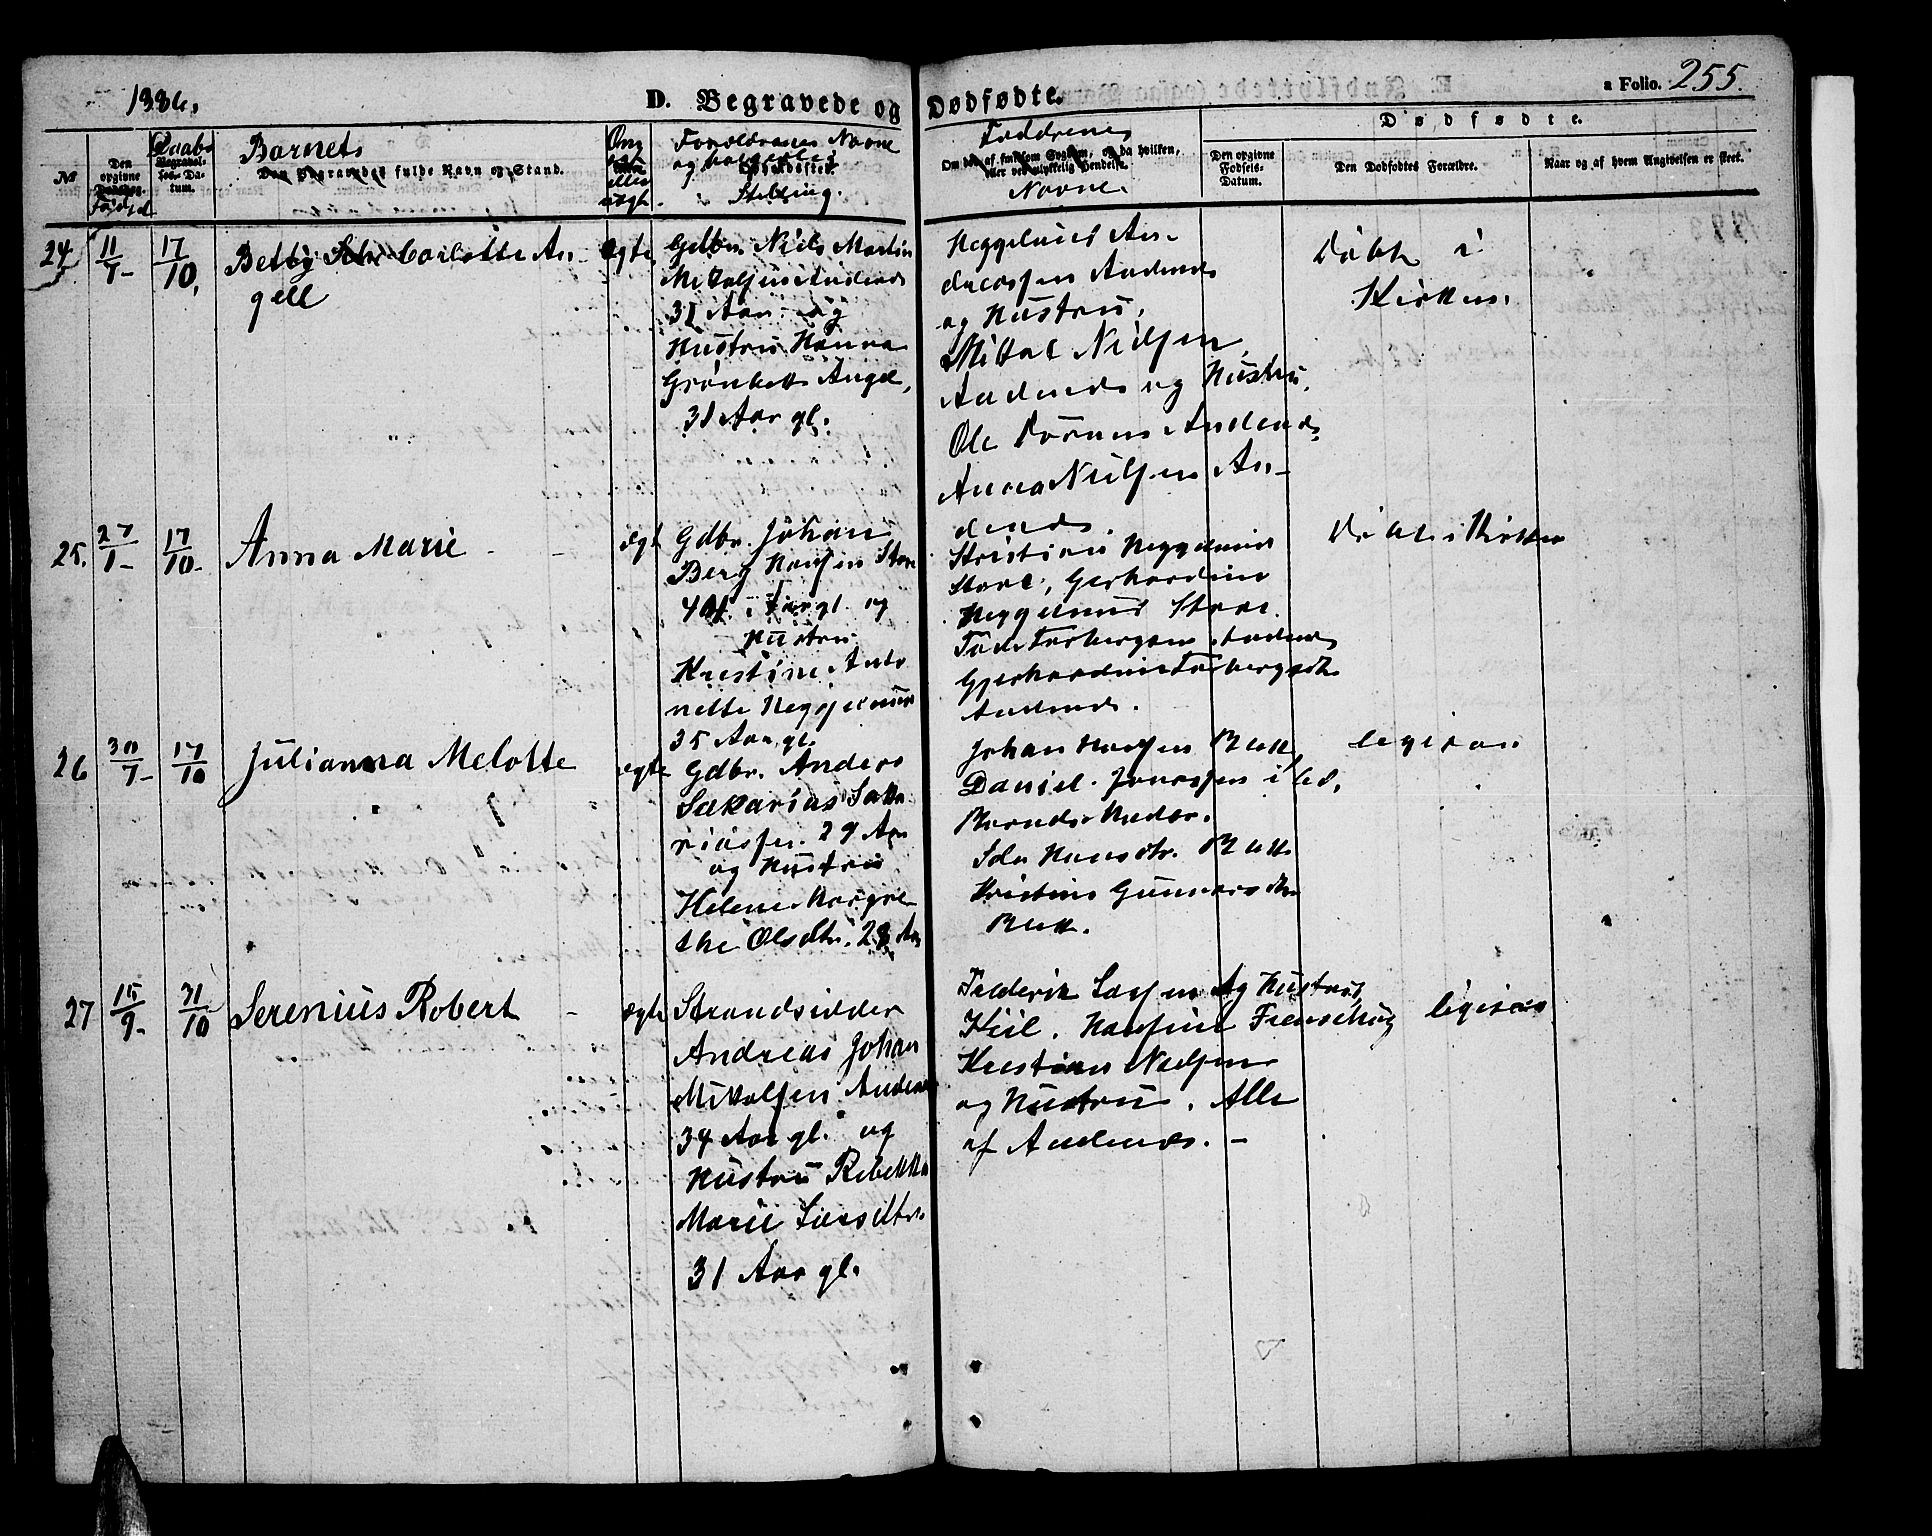 1886.
D. Begravede og Dødfødte.
a Folio. 255.
No
Den opgivne Dødsdag.
Fødsel
Daabs
Begravel-
ses-Da-
tum.
Barnets
Den Begravedes fulde Navn og Stand.
Om
ægte
eller
uægt.
Forældrenes Navne
og
Opholdssted.
Stilling.
Faddrenes
Om død af smitsom Sygdom, og da hvilken,
eller ved ulykkelig Hændelse.
Navne.
Dødfødte.
Den opgivne
Fødsels-
Datum.
Den Dødfødtes Forældre.
Naar og af hvem Angivelsen er skeet.
24
11/7-
17/10,
Betby Charlotte An-
gell
ægte
Gdbr. Niels Martin
Mikalsen Andenæs
31 Aar og
Hustru Hanna
Grønbeck Angel,
31 Aar gl.
Heggelund An-
dreassen Andenæs
og Hustru,
Mikal Nielsen
Andenæs og Hustru.
Ole Andenæs
Anna Nielsen An-
denæs.
Døbt i
Kirken.
25.
27/1-
17/10-
Anna Marie
ægt
Gdbr. Johan
Berg Hansen Stave
Aar gl. og
Hustru
Kristine Anto
nette Heggelund
35 Aar gl.
Kristian Heggelund
Stave, Gerhardine
Heggelund Stave.
Andenæs
Gjerhardine
Andenæs.
Døbt i Kirken
26
30/7-
17/10
Julianna Melotte
ægte
Gdbr. Anders
Sakarias Saka
riassen. 29 Aar
og Hustru
Helene Margre
the Olsdtr. 28 Aar
Johan Hansen Bleik
Daniel Jonassen ibd.
Barnets Moder.
Ida Hansdtr. Bleik
Kristine Gunnarsdtr
Bleik.
ligesaa
27
15/9-
31/10
Serenius Robert
ægte
Strandsidder
Andreas Johan
Mikalsen Andenæs
34 Aar gl. og
Hustru Rebekka
Marie Larsdtr.
31 Aar gl.
Frederik Larsen og Hustru,
Kiil. Hansine
Kristian Nielsen
og Hustru. Alle
af Andenæs. -
ligesaa